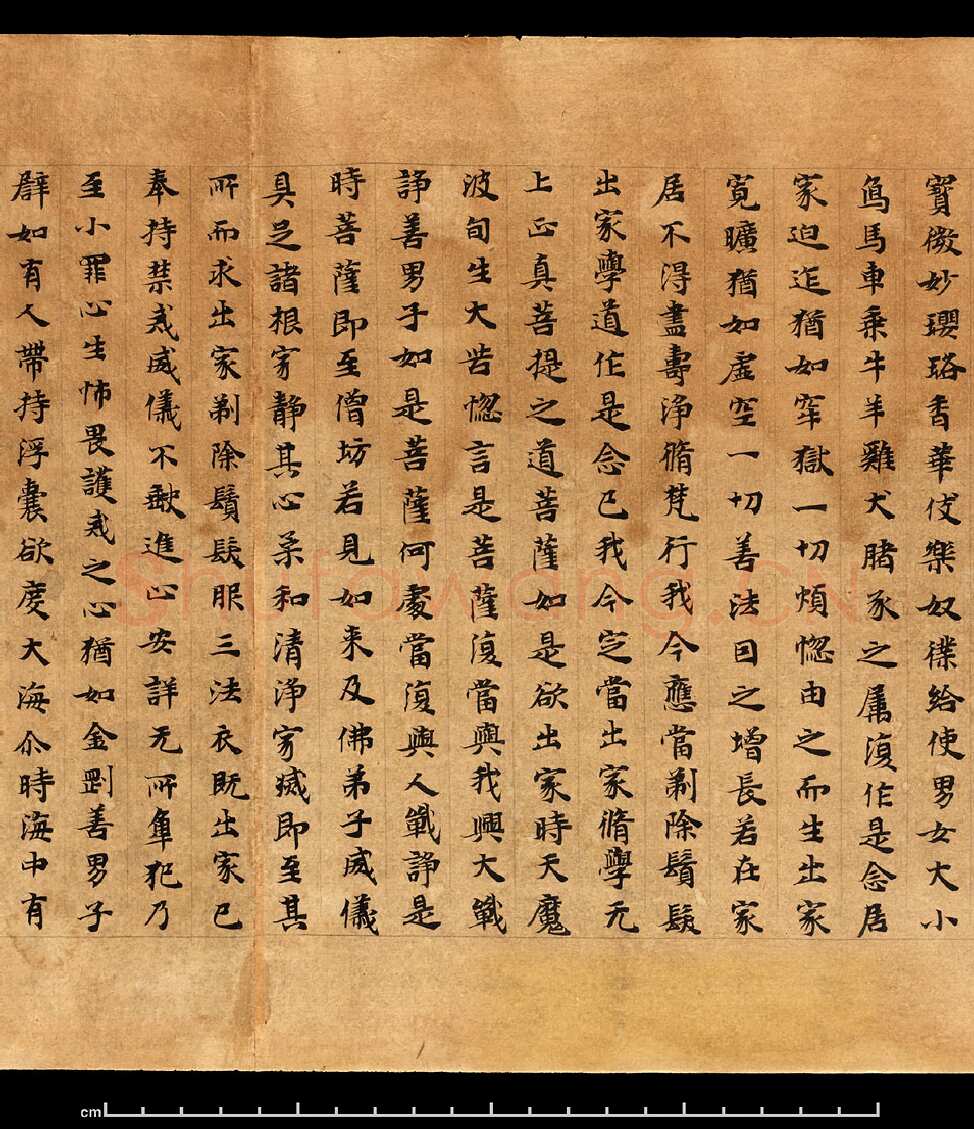 寳微妙瓔珞香華伎樂奴僕給使男女大小
烏馬車乘牛羊雞犬賭豕之属復作是念居
家迫迮猶如牢獄一切煩惚由之而生出家
寛曠猶如虚空一切善法因之增長若在家
居不得盡壽浄脩梵行我今應當剃除鬚髮
出家學道作是念已我今定當出家脩學无
上正真菩提之道菩薩如是欲出家時天魔
波旬生大苦惚言是菩薩復當與我興大戰
諍善男子如是菩薩何處當復與人戰諍是
時菩薩即至僧坊若見如来及佛弟子威儀
具足諸根家静其心柔和清浄家烕即至其
所而求出家剃除鬚髮服三法衣既出家已
奉持禁戒威儀不歃進止安詳无所觕犯乃
至小罪心生怖畏護戒之心猶如金剛善男子
辟如有人帶持浮囊欲度大海尒時海中有
Shufawang.cn
cm